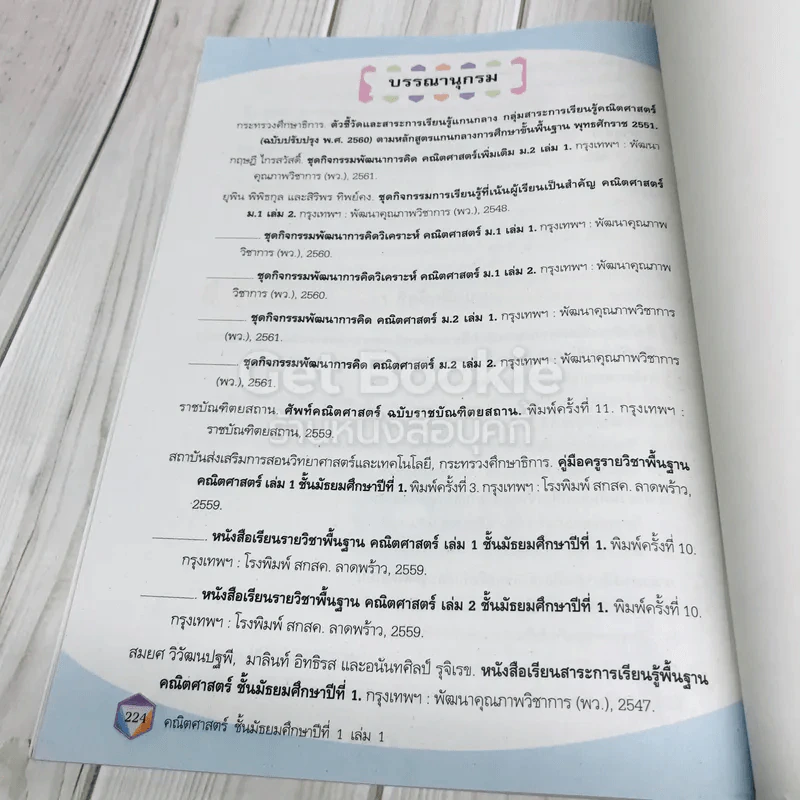 บรรณานุกรม
กระทรวงศึกษาธิการ. ตัวชี้วัดและสาระการเรียนรู้แกนกลาง กลุ่มสาระการเรียนรู้คณิตศาสตร์
(ฉบับปรับปรุง พ.ศ. 2560) ตามหลักสูตรแกนกลางการศึกษาขั้นพื้นฐาน พุทธศักราช 2551.
กฤษฎี ไกรสวัสดิ์. ชุดกิจกรรมพัฒนาการคิด คณิตศาสตร์เพิ่มเติม ม.2 เล่ม 1. กรุงเทพฯ : พัฒนา
คุณภาพวิชาการ (พว.), 2561.
ยุพิน พิพิธกุล และสิริพร ทิพย์คง. ชุดกิจกรรมการเรียนรู้ที่เน้นผู้เรียนเป็นสำคัญ คณิตศาสตร์
ม.1 เล่ม 2. กรุงเทพฯ : พัฒนาคุณภาพวิชาการ (พว.), 2548.
________ ชุดกิจกรรมพัฒนาการคิดวิเคราะห์ คณิตศาสตร์ ม.1 เล่ม 1. กรุงเทพฯ : พัฒนาคุณภาพ
วิชาการ (พว.), 2560.
________ ชุดกิจกรรมพัฒนาการคิดวิเคราะห์ คณิตศาสตร์ ม.1 เล่ม 2. กรุงเทพฯ : พัฒนาคุณภาพ
วิชาการ (พว.), 2560.
________ ชุดกิจกรรมพัฒนาการคิด คณิตศาสตร์ ม.2 เล่ม 1. กรุงเทพฯ : พัฒนาคุณภาพวิชาการ
(พว.), 2561.
________ ชุดกิจกรรมพัฒนาการคิด คณิตศาสตร์ ม.2 เล่ม 2. กรุงเทพฯ : พัฒนาคุณภาพวิชาการ
(พว.), 2561.
Get Bookie
ราชบัณฑิตยสถาน. ศัพท์คณิตศาสตร์ ฉบับราชบัณฑิตยสถาน. พิมพ์ครั้งที่ 11. กรุงเทพฯ :
ราชบัณฑิตยสถาน, 2559.
ร้านหนังสือบุคกี้
สถาบันส่งเสริมการสอนวิทยาศาสตร์และเทคโนโลยี, กระทรวงศึกษาธิการ. คู่มือครูรายวิชาพื้นฐาน
คณิตศาสตร์ เล่ม 1 ชั้นมัธยมศึกษาปีที่ 1. พิมพ์ครั้งที่ 3. กรุงเทพฯ : โรงพิมพ์ สกสค. ลาดพร้าว,
2559.
________. หนังสือเรียนรายวิชาพื้นฐาน คณิตศาสตร์ เล่ม 1 ชั้นมัธยมศึกษาปีที่ 1. พิมพ์ครั้งที่ 10.
กรุงเทพฯ : โรงพิมพ์ สกสค. ลาดพร้าว, 2559.
________. หนังสือเรียนรายวิชาพื้นฐาน คณิตศาสตร์ เล่ม 2 ชั้นมัธยมศึกษาปีที่ 1. พิมพ์ครั้งที่ 10.
กรุงเทพฯ : โรงพิมพ์ สกสค. ลาดพร้าว, 2559.
สมยศ วิวัฒนปฐพี, มาลินท์ อิทธิรส และอนันทศิลป์ รุจิเรข. หนังสือเรียนสาระการเรียนรู้พื้นฐาน
คณิตศาสตร์ ชั้นมัธยมศึกษาปีที่ 1. กรุงเทพฯ : พัฒนาคุณภาพวิชาการ (พว.), 2547.
224 คณิตศาสตร์ ชั้นมัธยมศึกษาปีที่ 1 เล่ม 1